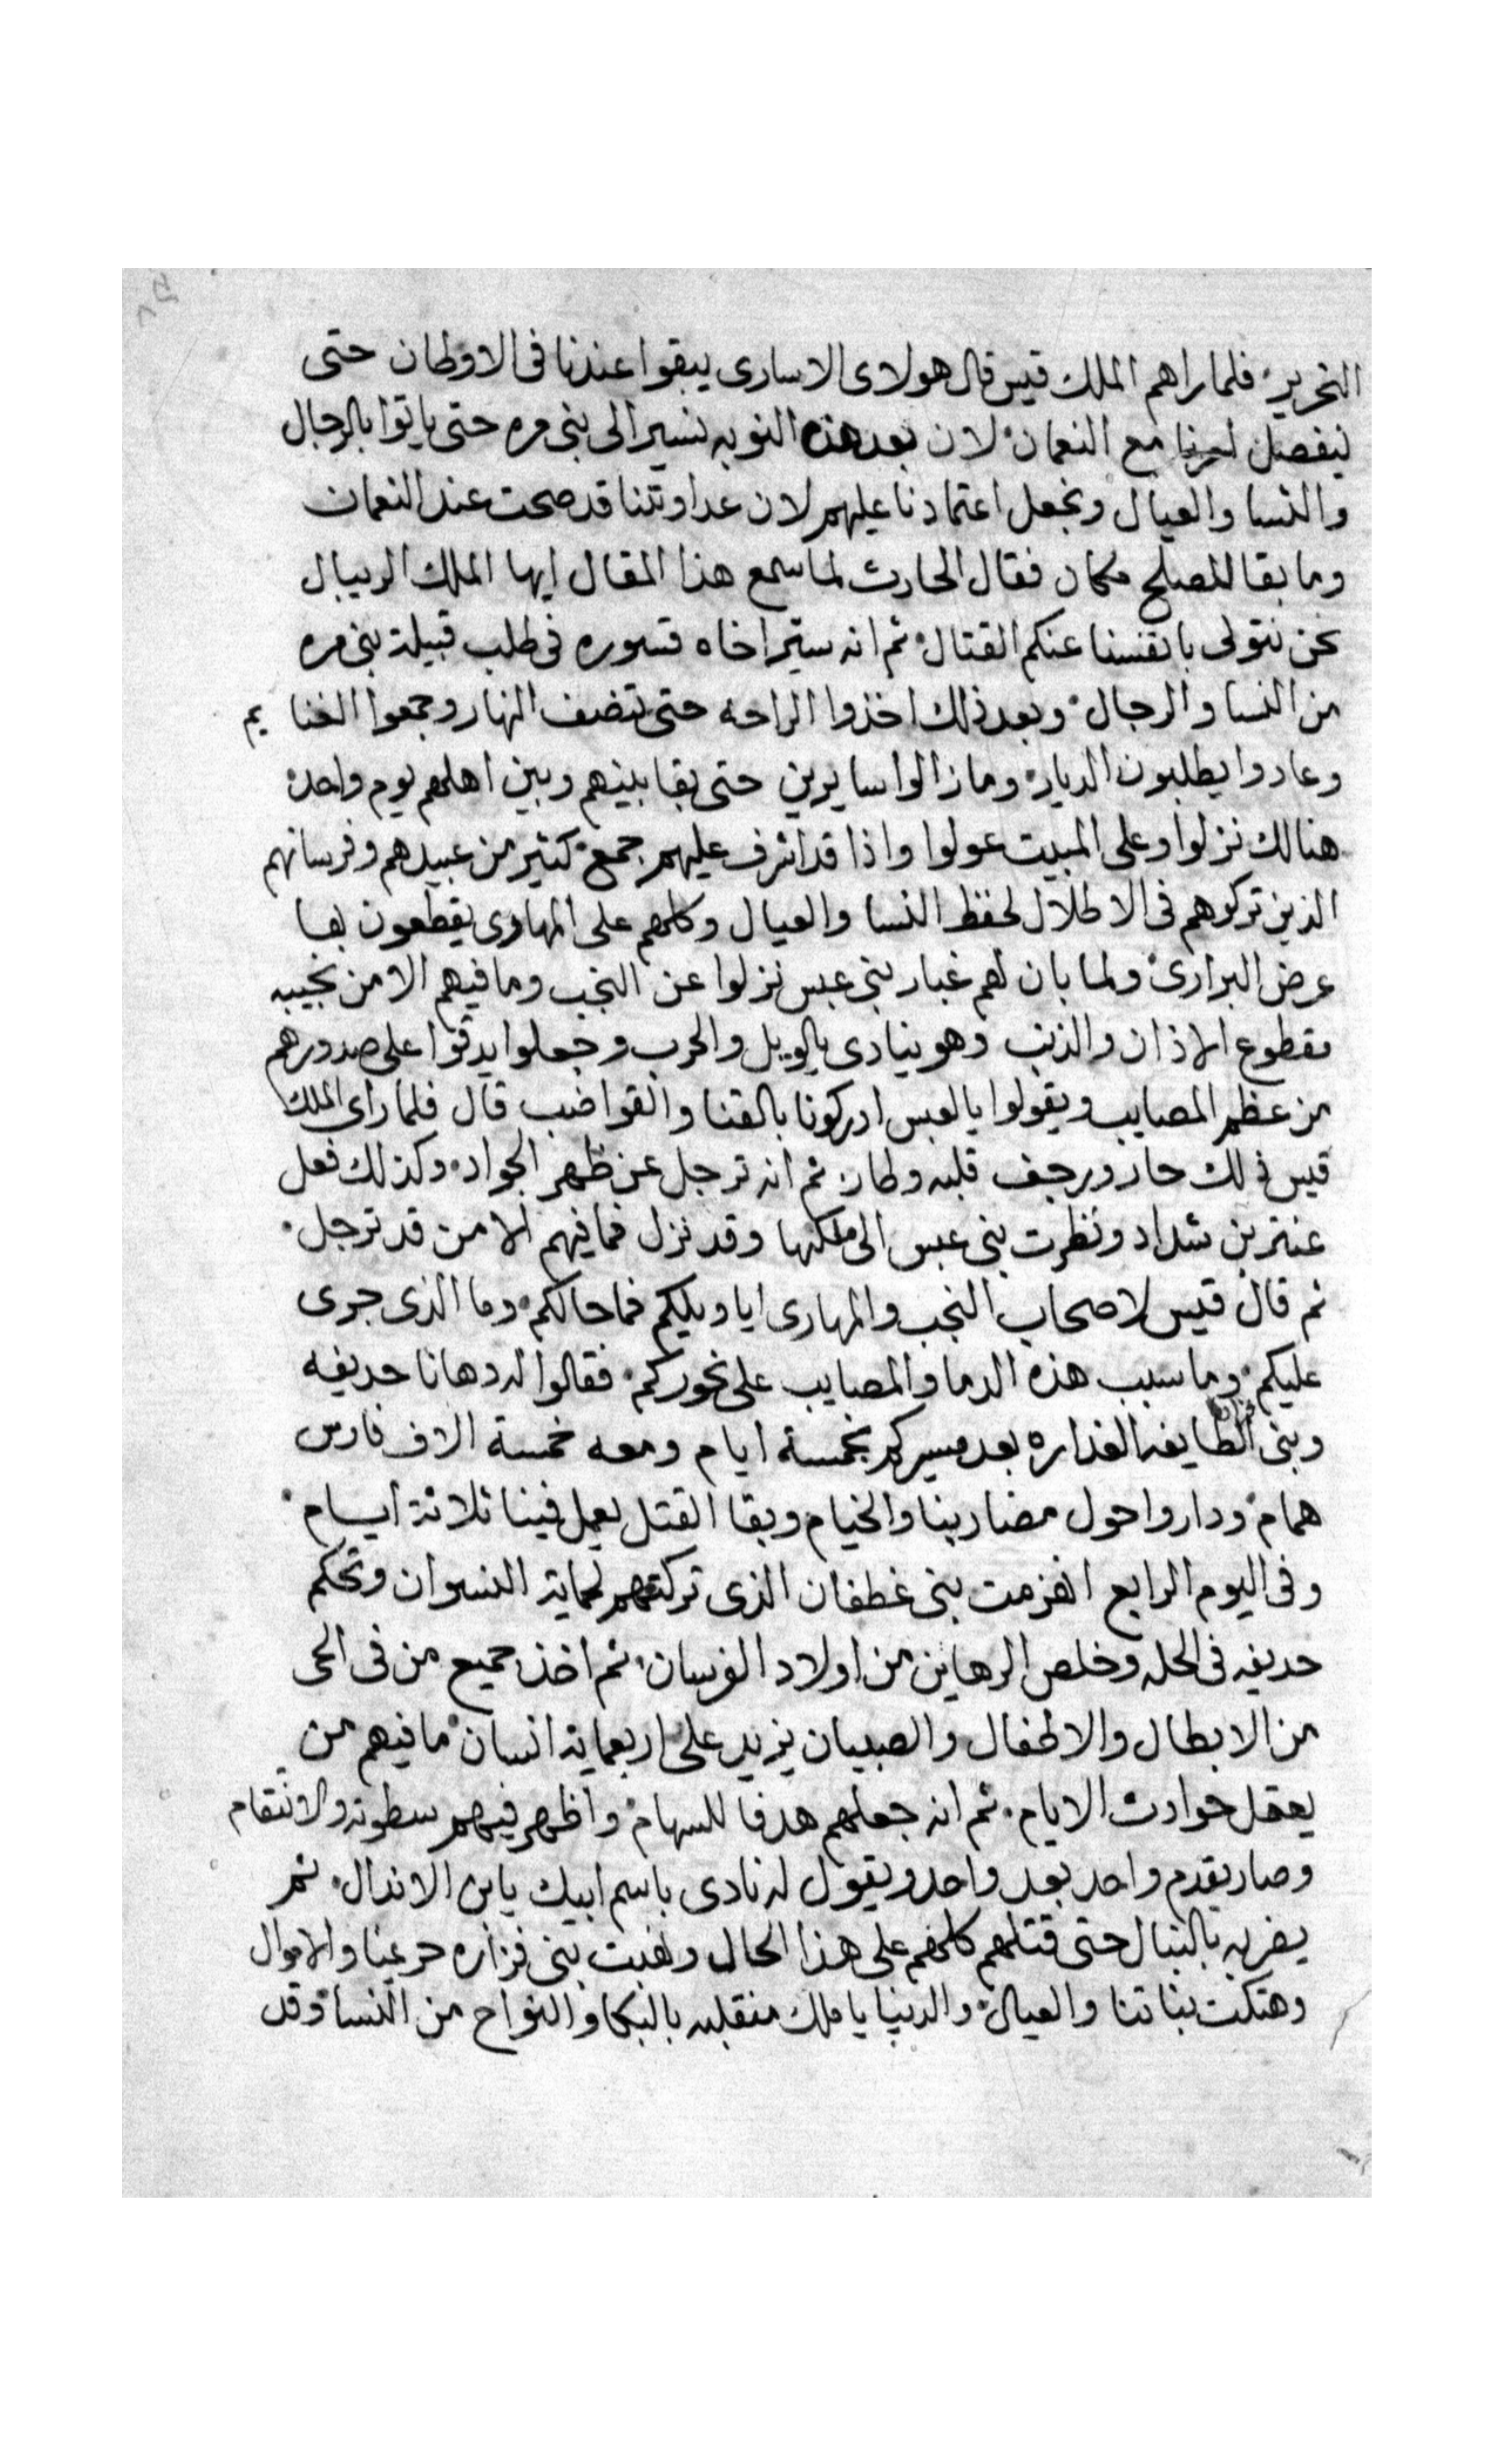 النحرير فلما راهم الملك قيس قال هولاى الاسارى يبقوا عندنا فى الاوطان حتى
ينفصل امرنا مع النعمان لان بعد هذه النوبه نسير الى بنى مره حتى ياتوا بالرجال
والنسا والعيال ونجعل اعتمادنا عليهم لان عداوتنا قد صحت عند النعمان
وما بقا للصلح مكان فقال الحارث لما سمع هذا المقال ايها الملك الريبال
نحن نتولى بانفسنا عنكم القتال ثم انه سير اخاه قسوره فى طلب قبيلة بنى مره
من النسا والرجال وبعد ذلك اخذوا الراحه حتى تنصف النهار وجمعوا الغنايم
وعادوا يطلبون الديار وما زالوا سايرين حتى بقا بينهم وبين اهلهم يوم واحد
هنالك نزلوا وعلى المبيت عولوا واذا قد اشرف عليهم جمع كثير من عبيدهم وفرسانهم
الذين تركوهم فى الاطلال لحفظ النسا والعيال وكلهم على المهارى يقطعون بها
عرض البرارى ولما بان لهم غبار بنى عبس نزلوا عن النجب وما فيهم الا من نجيبه
مقطوع الاذان والذنب وهو ينادى بالويل والحرب وجعلوا يدقوا على صدورهم
من عظم المصايب ويقولوا يا لعبس ادركونا بالقنا والقواضب قال فلما راى الملك
قيس ذلك حار ورجف قلبه وطار ثم انه ترجل عن ظهر الجواد وكذلك فعل
عنتر بن شداد ونظرت بنى عبس الى ملكها وقد نزل فما فيهم الا من قد ترجل
ثم قال قيس لاصحاب النجب والمهارى ايا ويلكم فما حالكم وما الذى جرى
عليكم وما سبب هذه الدما والمصايب على نحوركم فقالوا له دهانا حديفه
وبنى فزاره الطايفه الغداره بعد مسيركم بخمسة ايام ومعه خمسة الاف فارس
همام وداروا حول مضاربنا والخيام وبقا القتل يعمل فينا ثلاثة ايام
وفى اليوم الرابع انهزمت بنى غطفان الذى تركتهم لحماية النسوان وتحكم
حديفه فى الحله وخلص الرهاين من اولاد الفرسان ثم اخذ جميع من فى الحى
من الابطال والاطفال والصبيان يزيد على اربعماية انسان ما فيهم من
يعقل حوادث الايام ثم انه جعلهم هدفا للسهام واظهر فيهم سطوته والانتقام
وصار يقدم واحد بعد واحد ويقول له نادى باسم ابيك يابن الاندال ثم
يضربه بالنبال حتى قتلهم كلهم على هذا الحال ونهبت بنى فزاره حريمنا والاموال
وهتكت بناتنا والعيال والدنيا يا ملك منقلبه بالبكا والنواح من النسا وقد